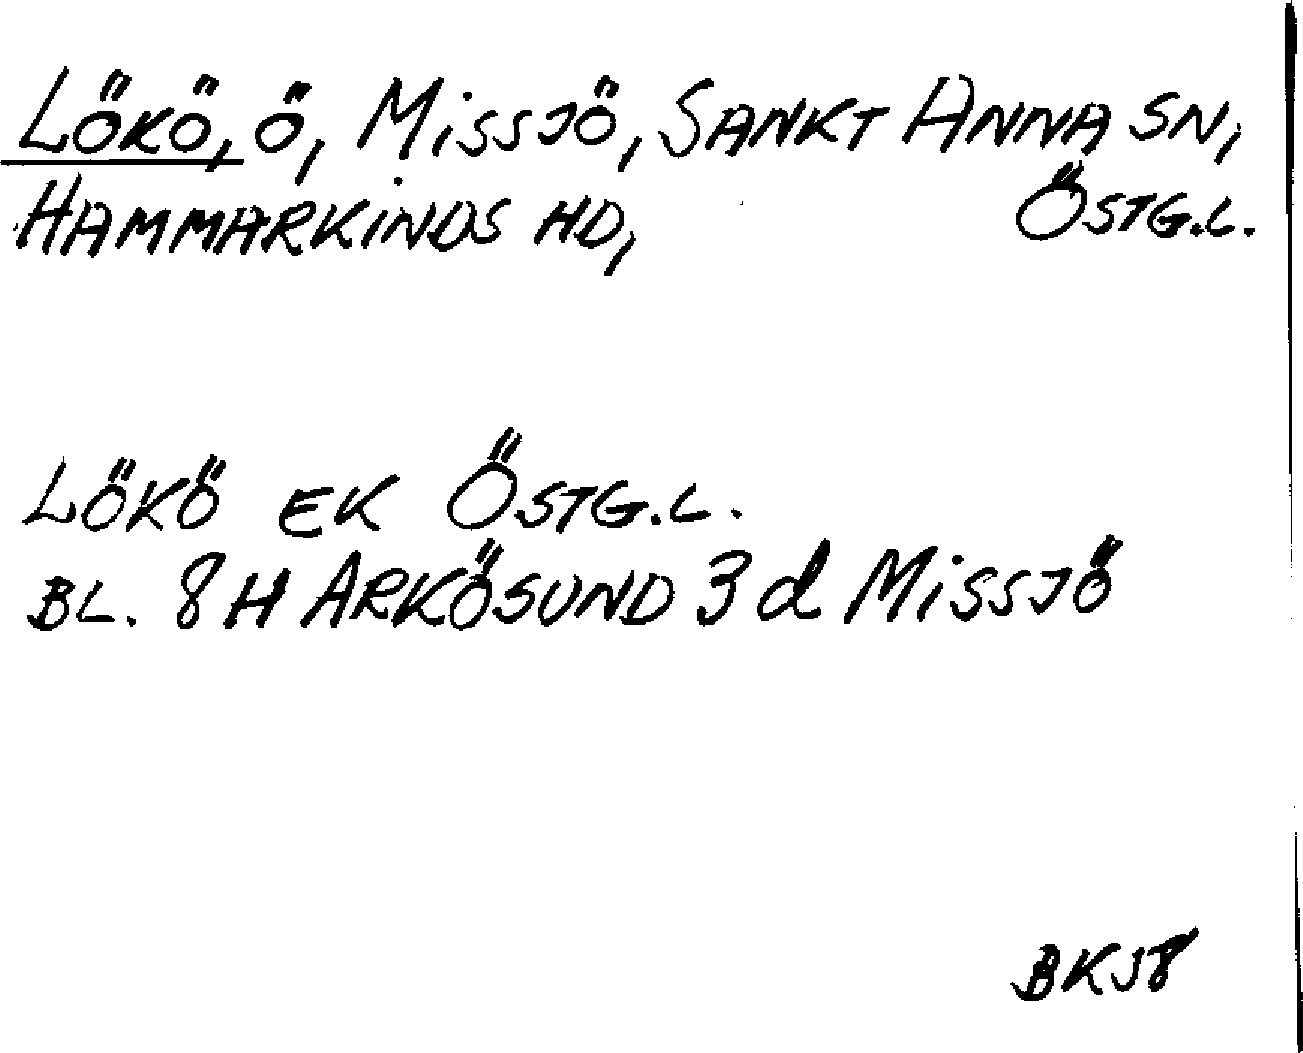 LÖKÖ, Ö, MISSJÖ, SANKT ANNA SN,
HAMMARKINDS HD, ÖSTG.L.
LÖKÖ EK ÖSTG.L.
BL. 8H ARKÖSUND 3d MISSJÖ